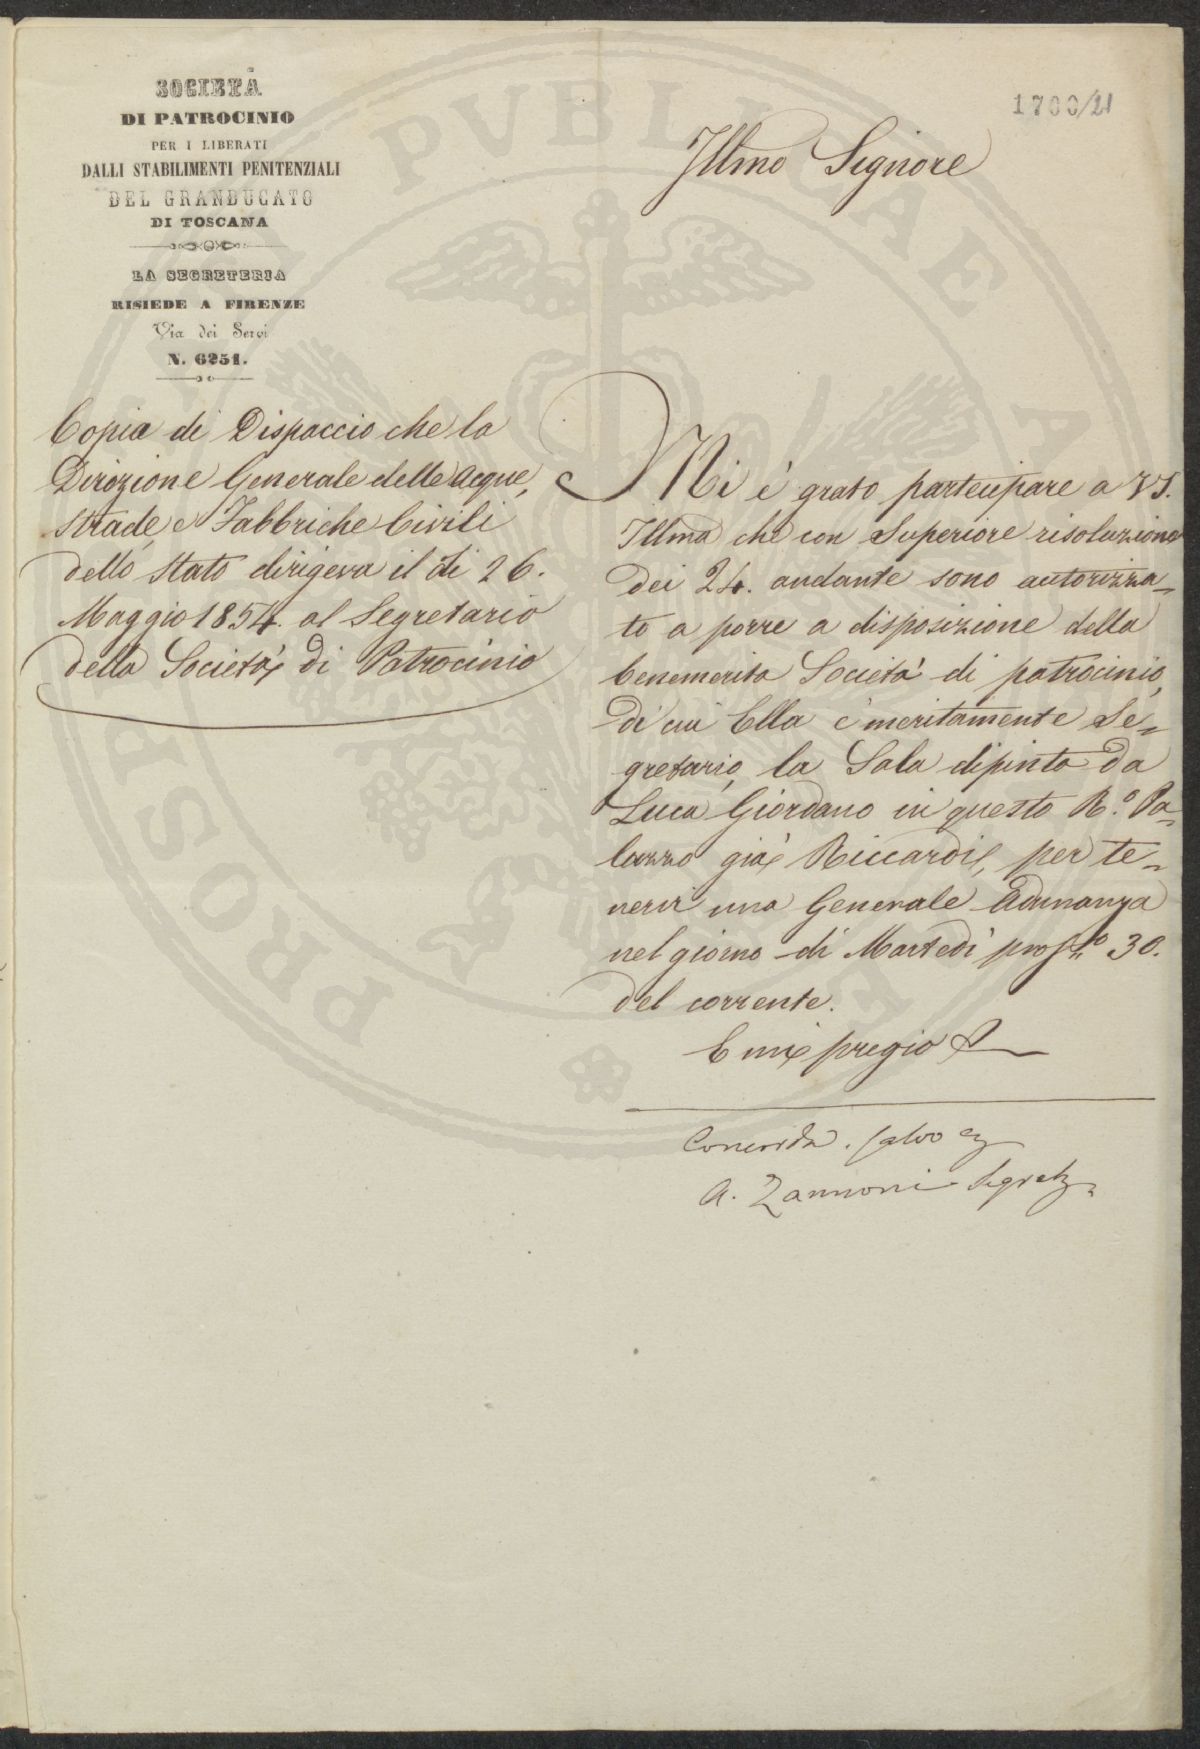 SOCIETÀ
DI PATROCINIO
PER I LIBERATI
DALLI STABILIMENTI PENITENZIALI
DEL GRANDUCATO
DI TOSCANA
LA SEGRETERIA
RISIEDE A FIRENZE
Via dei Servi
N. 6251.
Copia di Dispaccio che la
Direzione Generale delle Acque,
Strade e Fabbriche Civili
dello Stato dirigeva il dì 26.
Maggio 1854. al Segretario
della Società di Patrocinio
1700/21
Illmo Signore
Mi è grato partecipare a VS.
Illma che con Superiore risoluzione
dei 24. andante sono autorizza-
to a porre a disposizione della
benemerita Società di patrocinio,
di cui Ella è meritamente Se-
gretario, la Sala dipinta da
Luca Giordano in questo R.º Pa-
lazzo già Riccardi, per te-
nervi una Generale Adunanza
nel giorno di Martedì 30.
del corrente.
E mi pregio
Concorda. salvo
A. Zannoni
PVBLICAE
PROSPERITATI